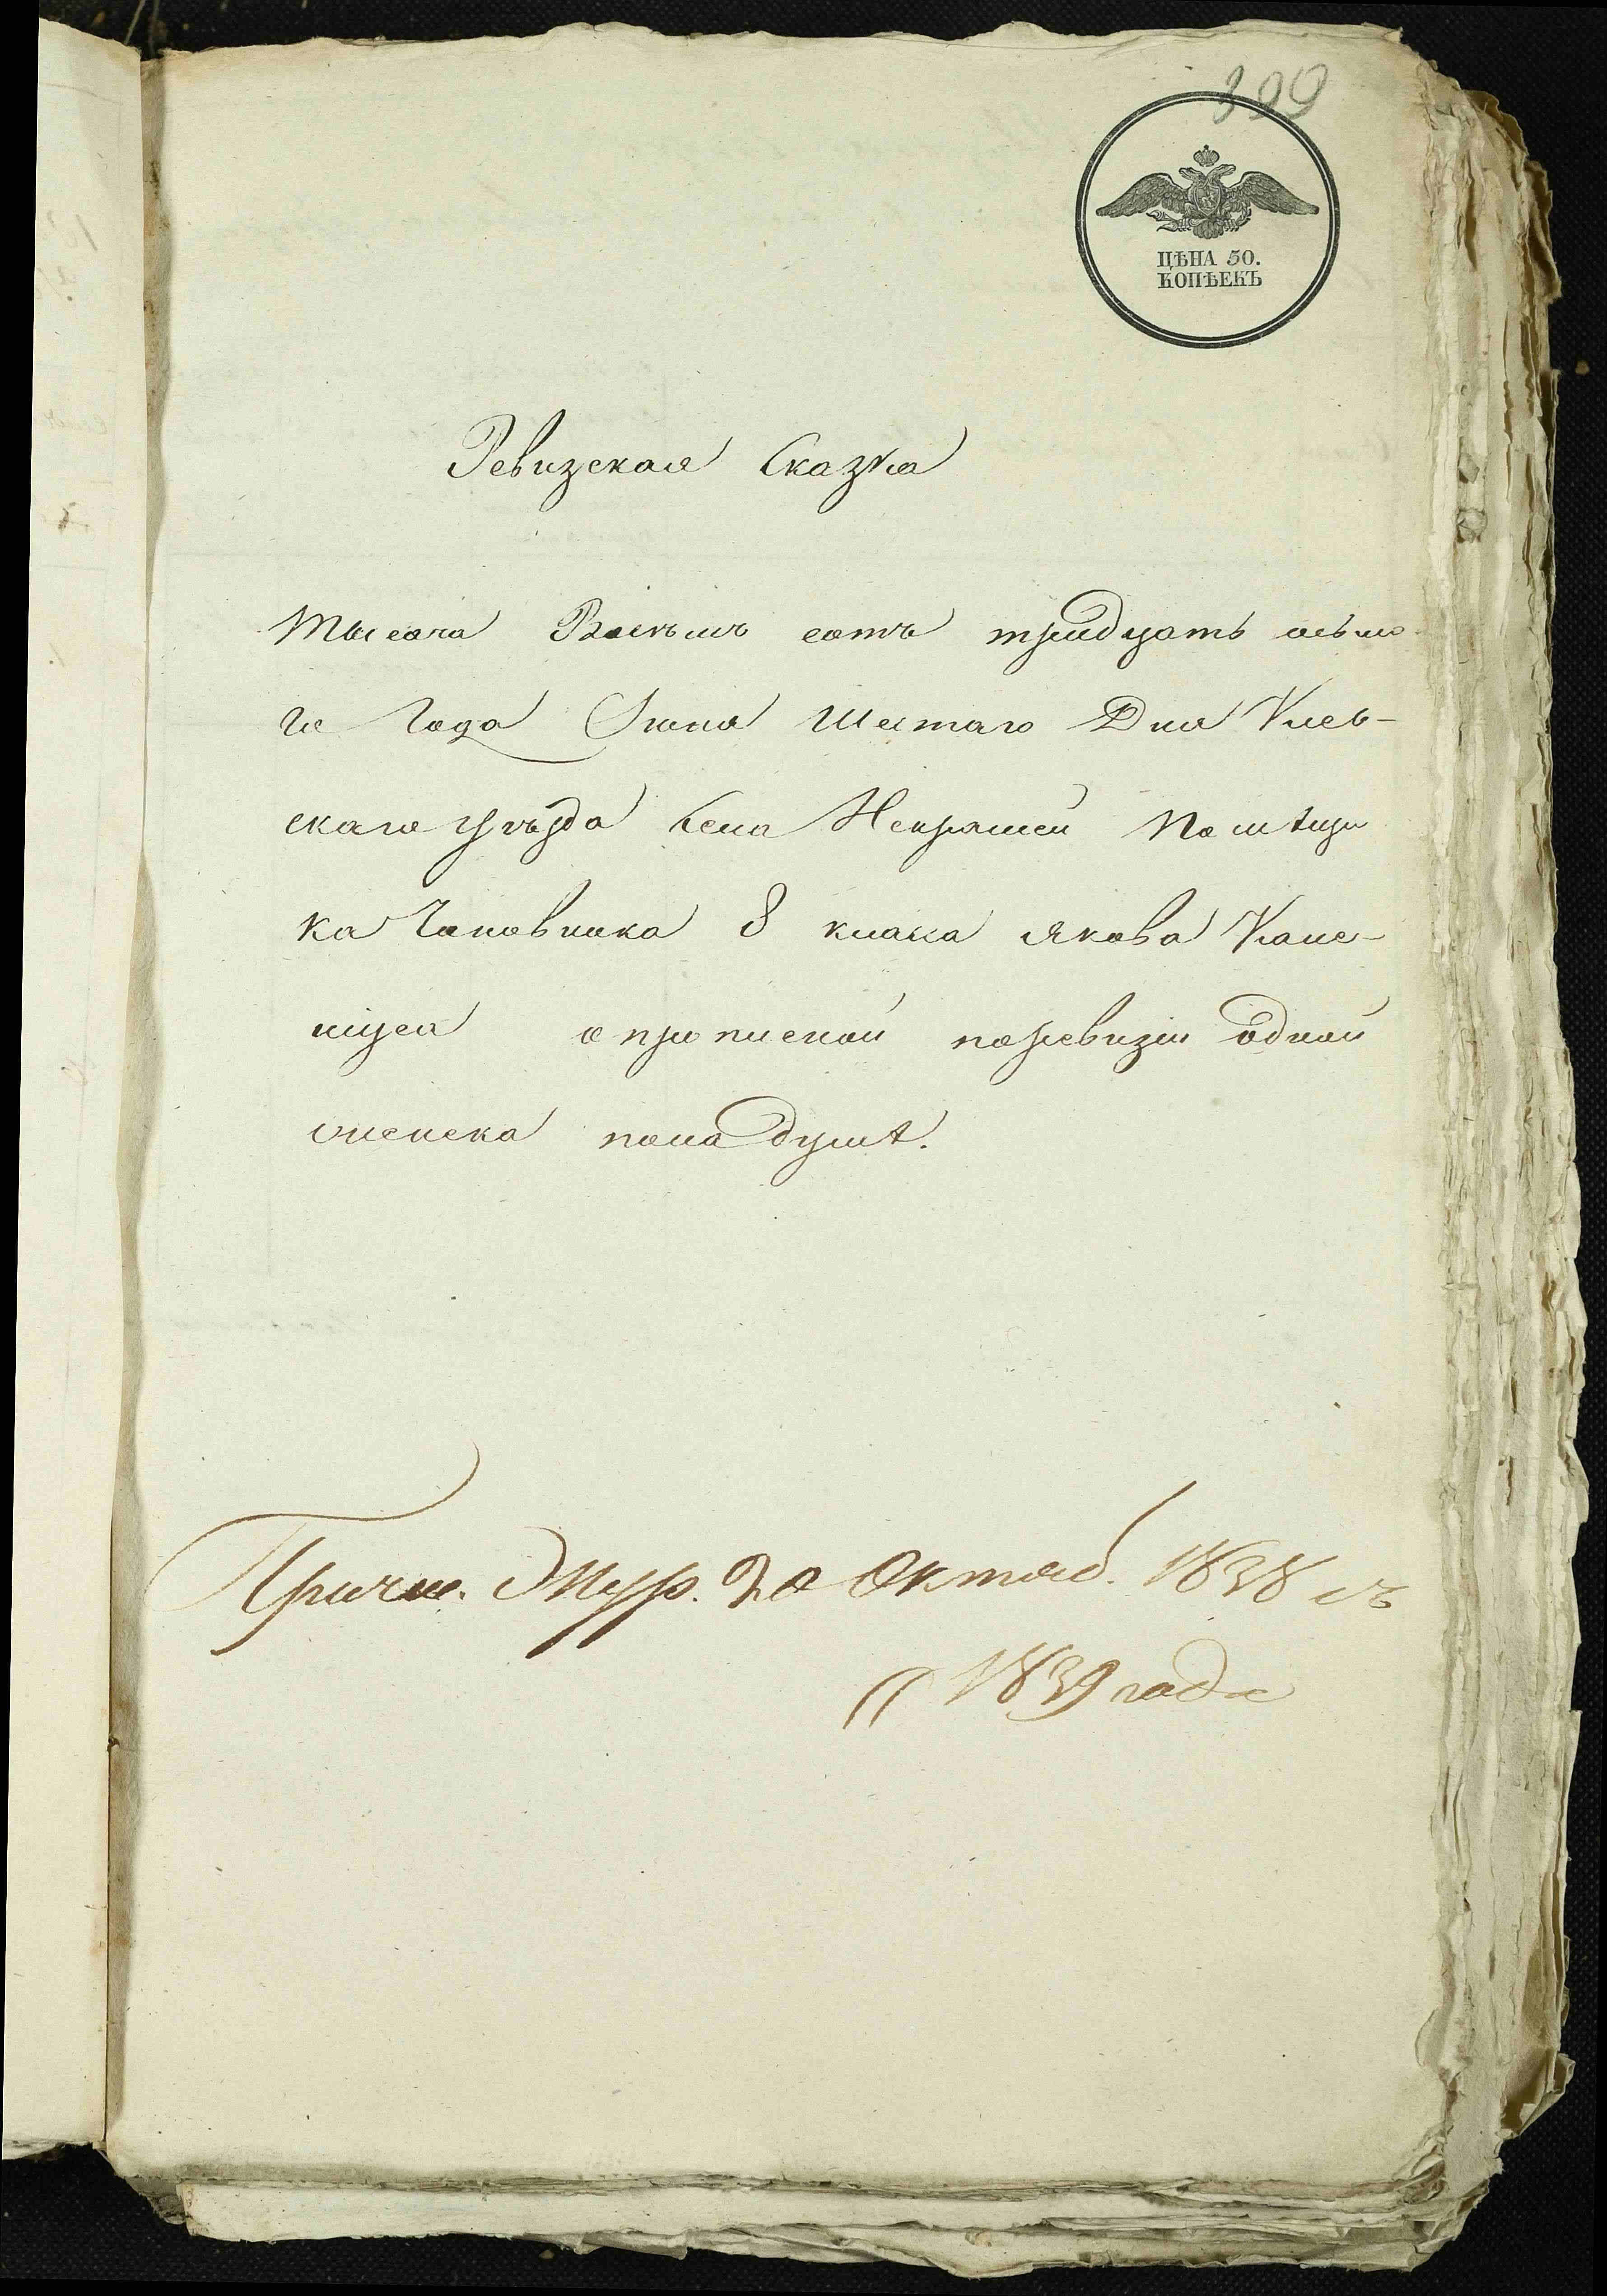 399
ЦѢНА 50.
КОПѢЕКЪ
Ревизская Сказка
Тысяча Восемь сотъ тридцать осьмо
го Года Іюня Шестаго Дня Кіев-
скаго уѣзда Села Некрашей Помѣщи
ка Чиновника 8 класса Якова
о прописной поревизіи одной
женска пола душѣ.
20 Октяб. 1838 съ
1839 года